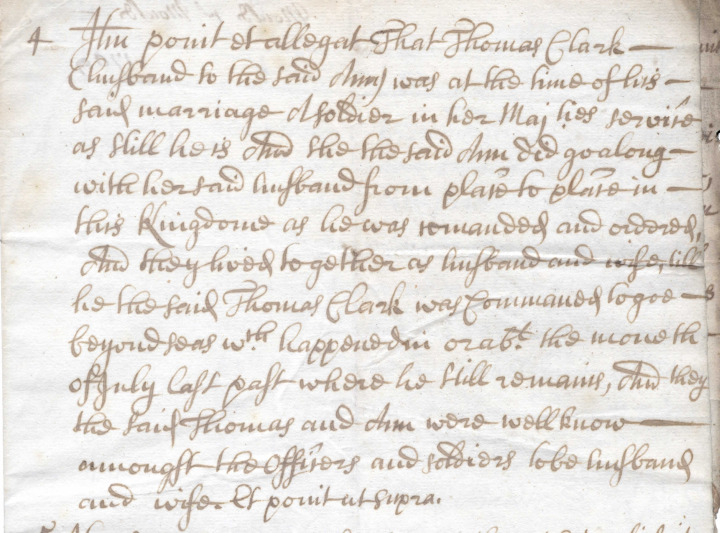 4 Itm ponit et allegat That Thomas Clark
(husband to the said Ann) was at the time of his
said marriage A soldier in her Maj:ties service
as still he is And she the said Ann did goalong
with her said husband from place to place in
this Kingdome as he was comanded and ordered,
And they lived together as husband and wife, till
he the said Thomas Clark was Commaned to goe
beyond seas wth. happened in or abt. the moneth
of July last past where he still remains, And they
the said Thomas and Ann were well know
amongst the Officers and soldiers to be husband
and wife. Et ponit ut supra.